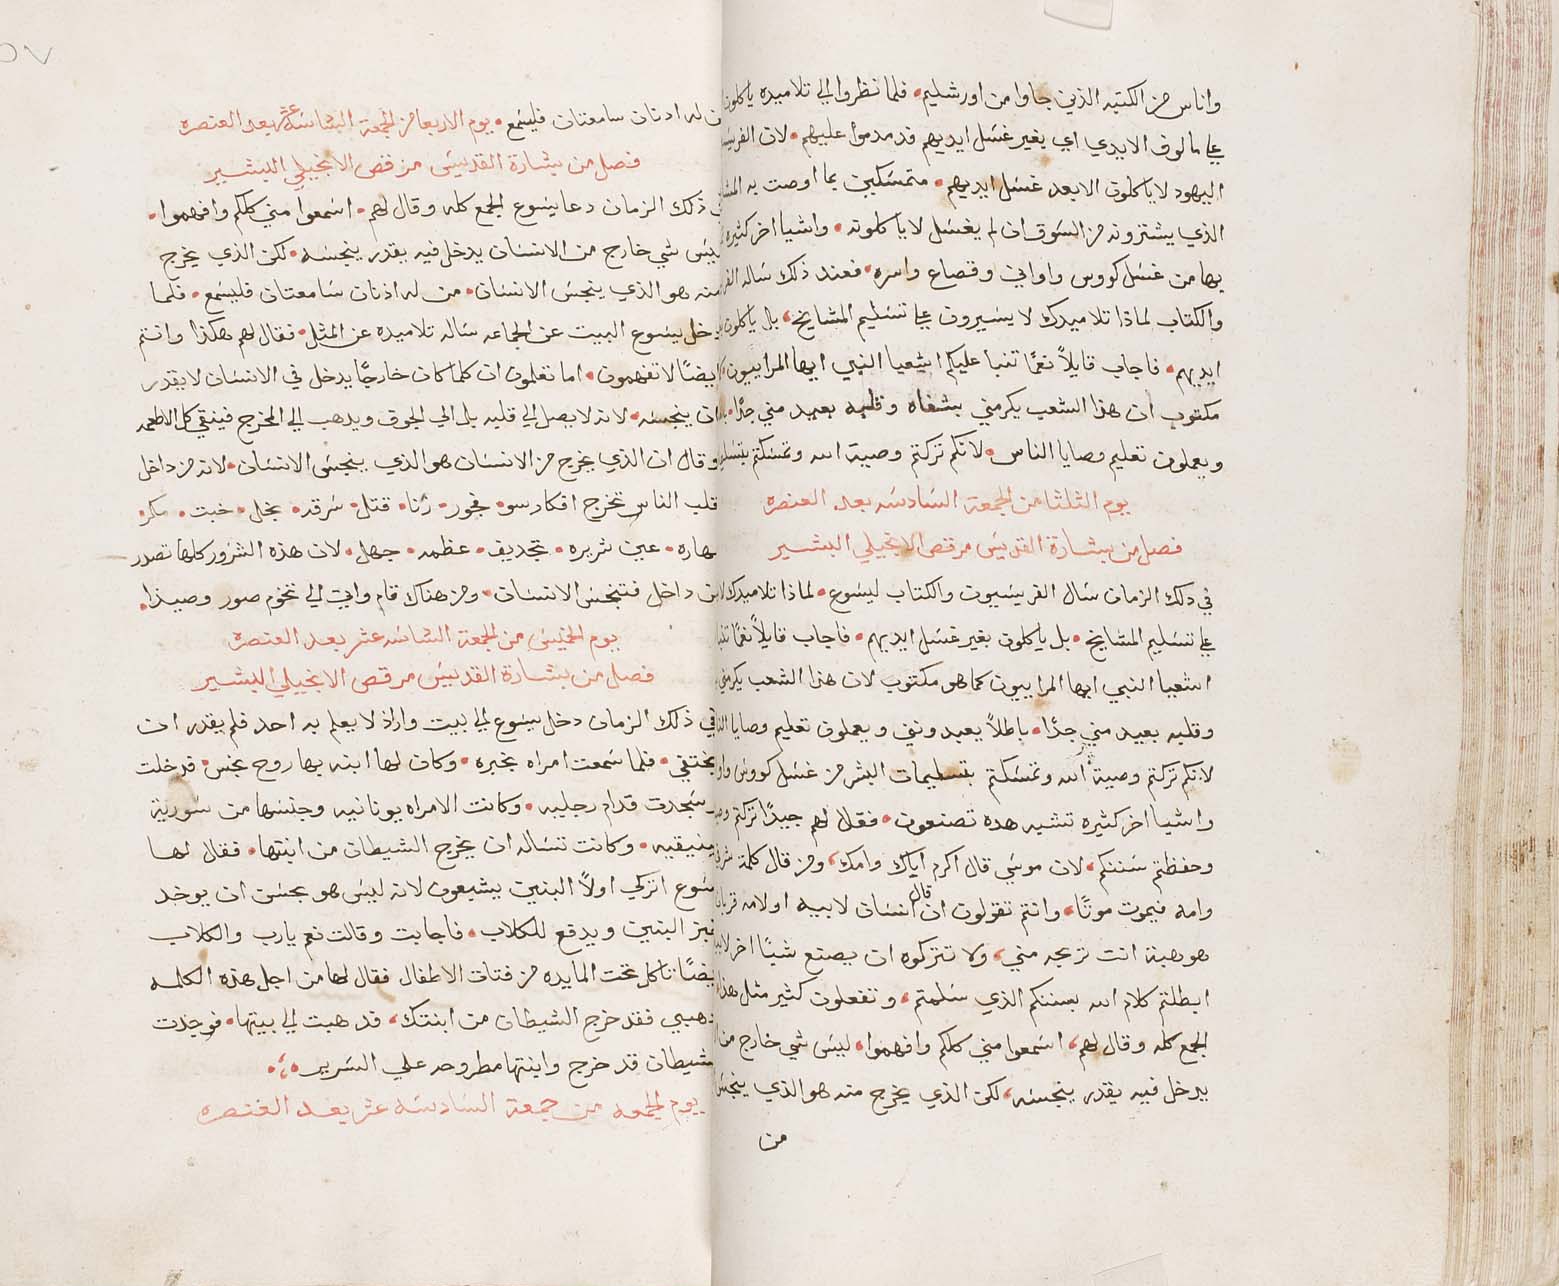 واناس من الكتبه الذين جاوا من اورشليم• فلما نظروا الي تلاميده ياكلون
علي مالوف الايدي اي بغير غسل ايديهم قدمدموا عليهم• لان
اليهود لا ياكلون الا بعد غسل ايديهم• متمسكين بما اوصت به
الذي يشترونه من السوق ان لم يغسل لا ياكلونه• واشيا اخر كثيره
بها من غسل كووس واواني وقصاع واسره• فعند ذلك ساله
والكتاب لماذا تلاميدك لا يسيرون علي تسليم المشايخ، بل ياكلون
ايديهم• فاجاب قايلاً نعمًا تنبا عليكم اشعيا النبي ايها المراييون
مكتوب ان هذا الشعب يكرمني بشفاه وقلبه بعيد مني جدًا•
ويعملون تعليم وصايا الناس• لانكم تركتم وصية الله وتمسكتم
يوم الثلثا من الجمعة السادسه بعد العنصره
فصل من بشارة القديس مرقص الانجيلي البشير
في دلك الزمان سال الفريسيون والكتاب ليسوع• لماذا تلاميدك
علي تسليم المشايخ• بل ياكلون بغير غسل ايديهم• فاجاب قايلاً نعمًا
اشعيا النبي ايها المراييون كما هو مكتوب لان هذا الشعب يكرمني
وقلبه بعيد مني جدًا• باطلاً يعبدونني ويعملون تعليم وصايا
لانكم تركتم وصية الله وتمسكتم بتسليمات البشر من غسل كووس
واشيا اخر كثيره تشبه هده تصنعون• فقال لهم جيدًا تركتم
وحفظتم سننكم، لان موسي قال اكرم اباك وامك، ومن قال كلمة
وامه فيموت موتًا، وانتم تقولون ان قال انسان لابيه او لامه
هو هبة انت تربحه مني، ولا تتركوه ان يصنع شيًا اخر
ابطلتم كلام الله بسننكم الذي سلمتم، وتفعلون كثير مثل هذا
الجمع كله وقال لهم، اسمعوا مني كلكم وافهموا، ليس شي خارج من
يدخل فيه يقدر ينجسه، لكن الذي يخرج منه هو الذي ينجس
من
له ادنان سامعتان فليسمع• يوم الاربعا من الجمعة السادسه عشر بعد العنصره
فصل من بشارة القديس مرقص الانجيلي البشير
ذلك الزمان دعا يسوع الجمع كله وقال لهم• اسمعوا مني كلكم وافهموا•
ليس شي خارج من الانسان يدخل فيه يقدر ينجسه• لكن الذي يخرج
منه هو الذي ينجس الانسان• من له اذنان سامعتان فليسمع• فلما
دخل يسوع البيت عن الجماعه ساله تلاميده عن المثل• فقال لهم هكذا وانتم
ايضًا لا تفهمون• اما تعلمون ان كلما كان خارجًا يدخل في الانسان لا يقدر
ان ينجسه• لانه لا يصل الي قلبه بل الي الجوف ويدهب الي المخرج فينقي كل الاطعمه
وقال ان الذي يخرج من الانسان هو الذي ينجس الانسان• لانه من داخل
قلب الناس تخرج افكار سو• فجور• زنا• قتل• سرقه• بخل• خبت• مكر•
عهاره• عين شريره• تجديف• عظمه• جهل• لان هذه الشرور كلها تصدر
من داخل فتنجس الانسان• ومن هناك قام واتي الي تخوم صور وصيدا•
يوم الخميس من الجمعة السادسه عشر بعد العنصره
فصل من بشارة القديس مرقص الانجيلي البشير
في ذلك الزمان دخل يسوع الي بيت واراد لا يعلم به احد فلم يقدر ان
يختفي• فلما سمعت امراه بخبره• وكان لها ابنه بها روح نجس• فدخلت
وسجدت قدام رجليه• وكانت الامراه يونانيه وجنسها من سورية
فنيقيه• وكانت تساله ان يخرج الشيطان من ابنتها• فقال لها
يسوع اتركي اولاً البنين يشبعون لانه ليس هو بحسن ان يوخد
خبز البنين ويدفع للكلاب• فاجابت وقالت نعم يارب والكلاب
ايضًا تاكل تحت المايده من فتات الاطفال فقال لها من اجل هذه الكلمه
ادهبي فقد خرج الشيطان من ابنتك، فدهبت الي بيتها• فوجدت
الشيطان قد خرج وابنتها مطروحه علي السرير•
يوم الجمعه من جمعة السادسه عشر بعد العنصره